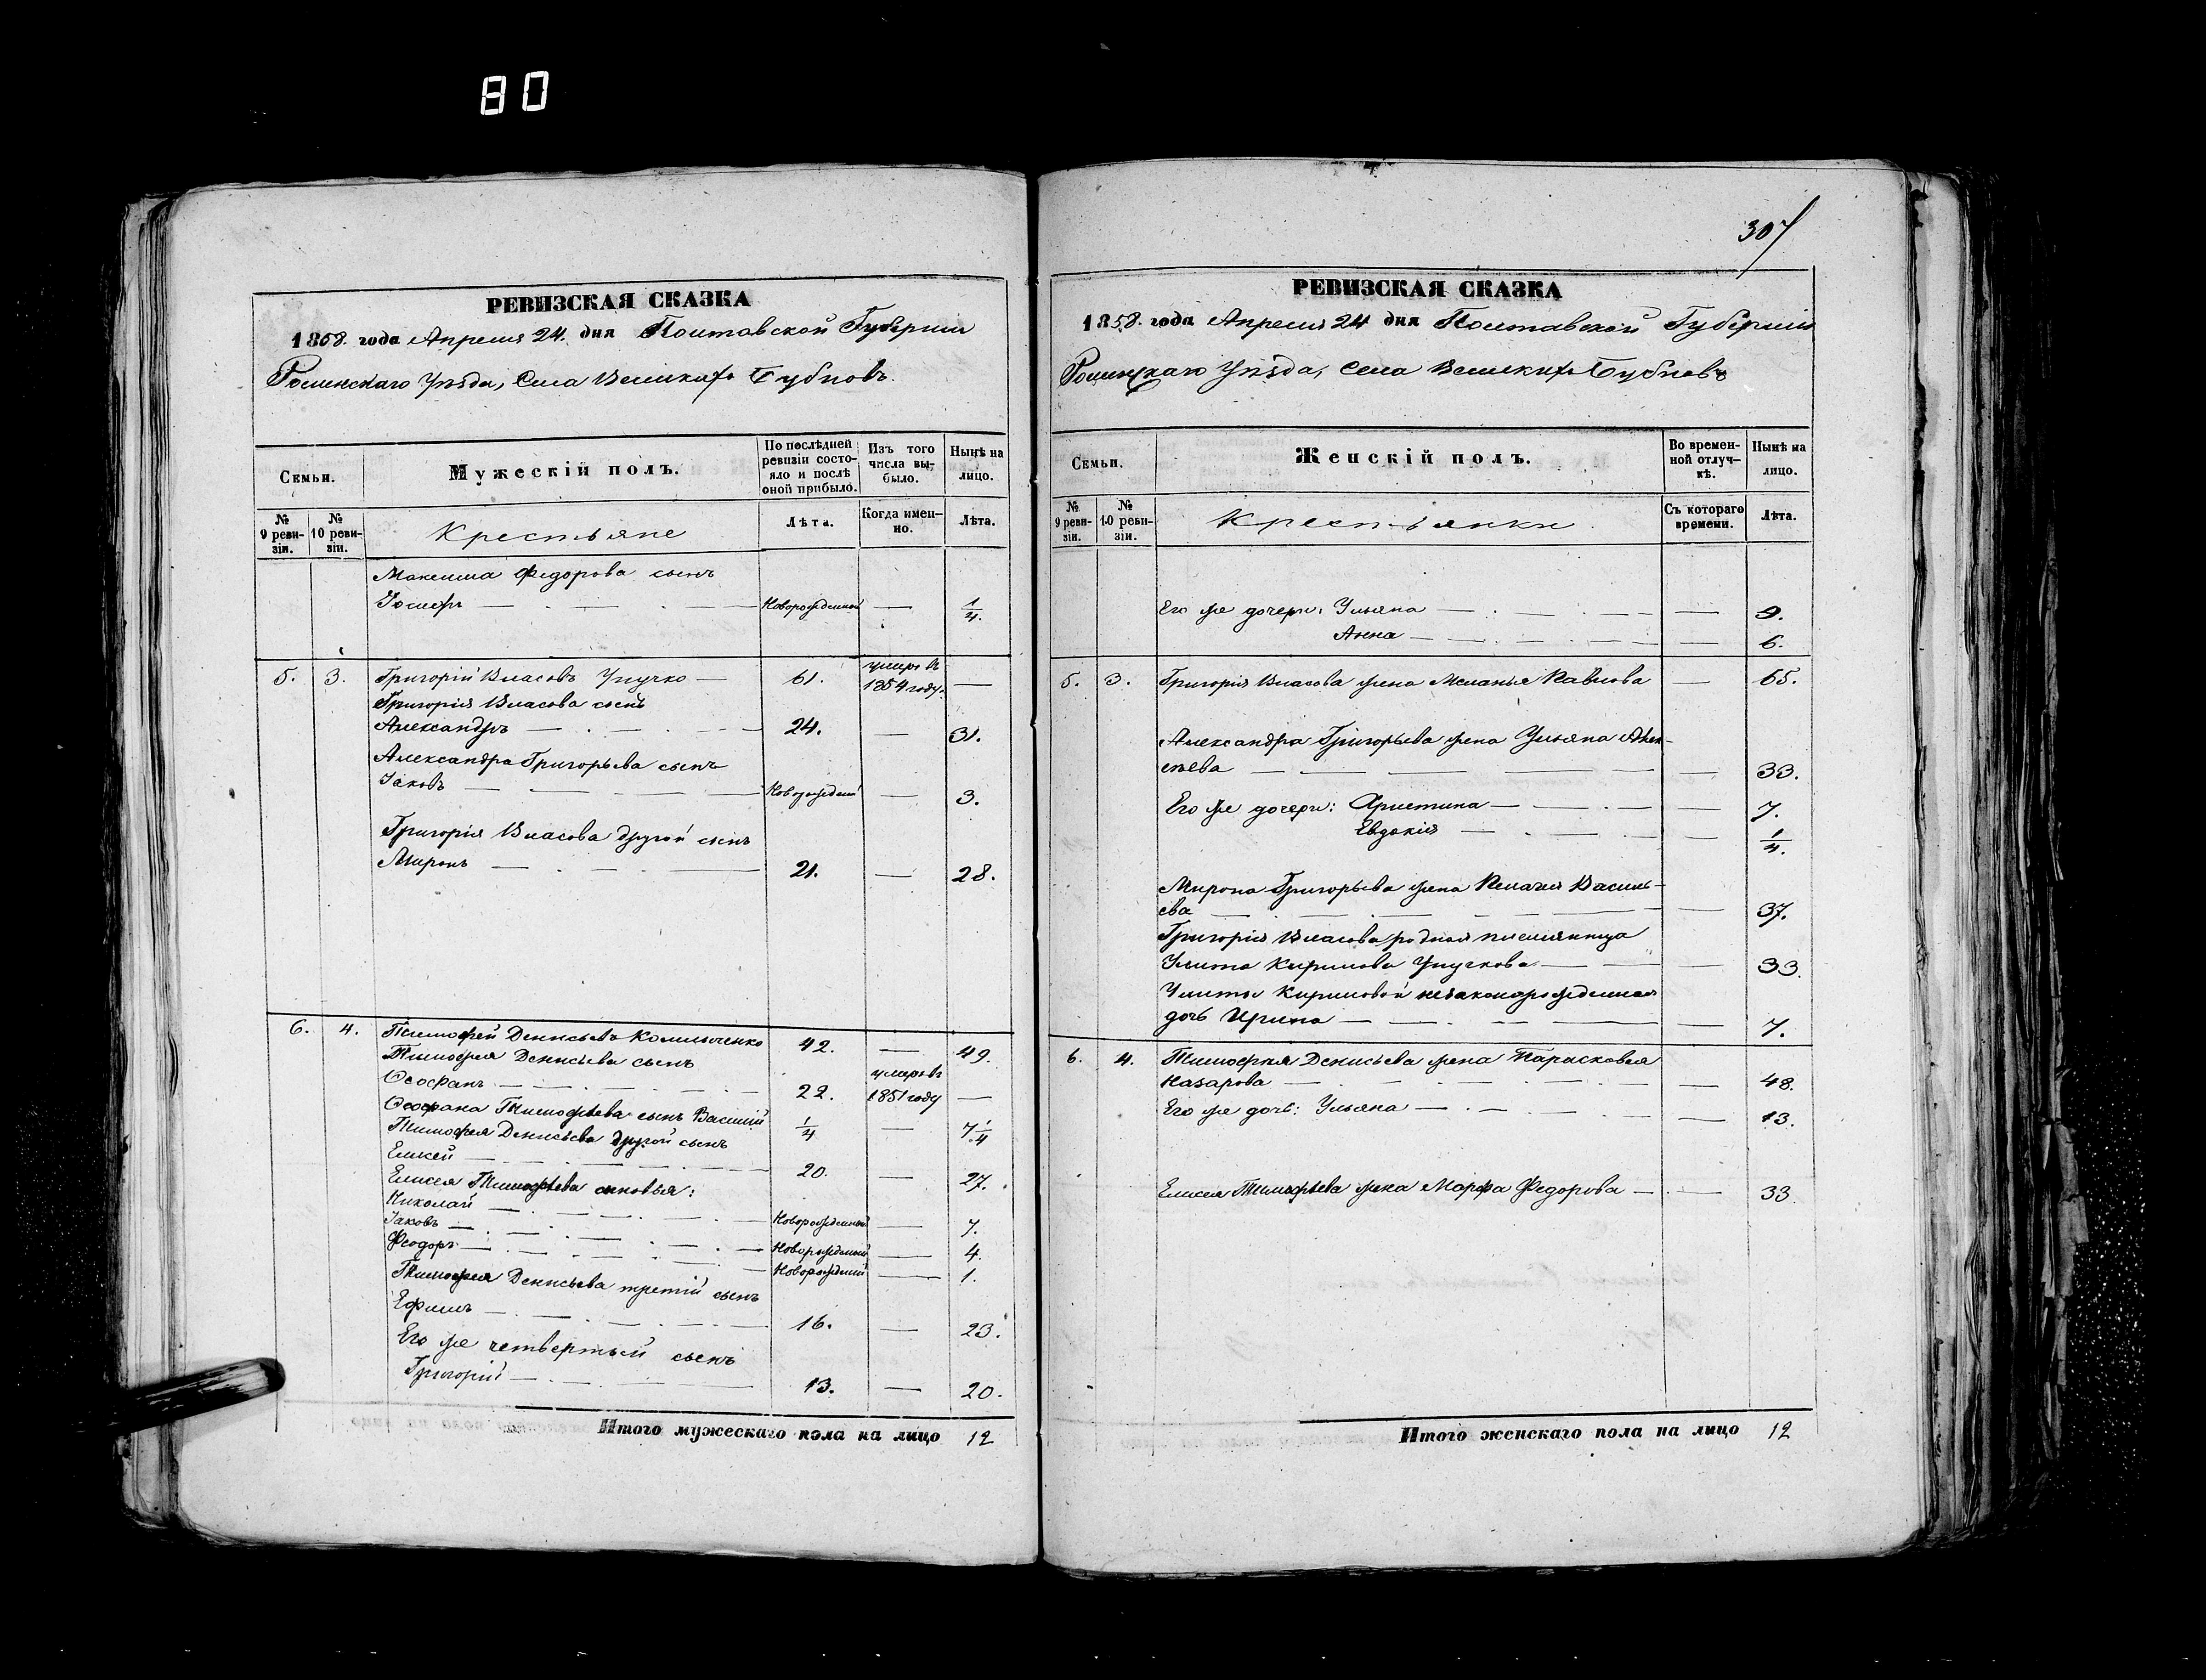 80
РЕВИЗСКАЯ СКАЗКА
1858. года Апреля 24. дня Полтавской Губернии
Роменскаго Уѣзда, Села Великихъ Бубновъ.
Семьи.
Мужескій полъ.
По послѣдней ревизіи состояло и послѣ оной прибыло.
Изъ того числа выбыло.
Нынѣ на лицо.
№ 9 ревизіи.
№ 10 ревизіи.
Крестьяне
Лѣта.
Когда именно.
Лѣта.
Максима Федорова сынъ
Іосифъ — Новорожденный — 1/4.
5. 3. Григорій Власовъ — 61. умеръ въ 1854 году. —
Григорія Власова сынъ
Александръ — 24. — 31.
Александра Григорьева сынъ
Іаковъ — Новорожденный — 3.
Григорія Власова другой сынъ
Миронъ — 21. — 28.
6. 4. Тимофей Денисьевъ 42. — 49.
Тимофея Денисьева сынъ
Феофанъ — 22. умеръ въ 1851 году —
Феофана Тимофѣева сынъ Василій 1/4 — 7 1/4
Тимофея Денисьева другой сынъ
Елисей — 20. — 27.
Елисея Тимофѣева сыновья:
Николай — Новорожденный — 7.
Іаковъ — Новорожденный — 4.
Феодоръ — Новорожденный — 1.
Тимофея Денисьева третій сынъ
Ефимъ — 16. — 23.
Его же четвертый сынъ
Григорій — 13. — 20.
Итого мужескаго пола на лицо 12
307
РЕВИЗСКАЯ СКАЗКА
1858. года Апреля 24 дня Полтавской Губерніи
Роменскаго Уѣзда, Села Великихъ Бубновъ
Семьи.
Женскій полъ.
Во временной отлучкѣ.
Нынѣ на лицо.
№ 9 ревизіи.
№ 10 ревизіи.
Крестьянки
Съ котораго времени.
Лѣта.
Его же дочери: Ульяна — — 9.
Анна — — 6.
5. 3. Григорія Власова жена Меланья Павлова — 65.
Александра Григорьева жена Ульяна Алек-
сѣева — — 33.
Его же дочери: Христина — — 7.
Евдокія — — 1/4.
Мирона Григорьева жена Пелагея Василь-
ева — — 37.
Григорія Власова родная племянница
Улита Кирилова — — 33.
Улиты Кириловой незаконорожденная
дочь Ирина — — 7.
6. 4. Тимофея Денисьева жена Парасковея
Назарова — — 48.
Его же дочь: Ульяна — — 13.
Елисея Тимофѣева жена Марфа Федорова — — 33.
Итого женскаго пола на лицо 12